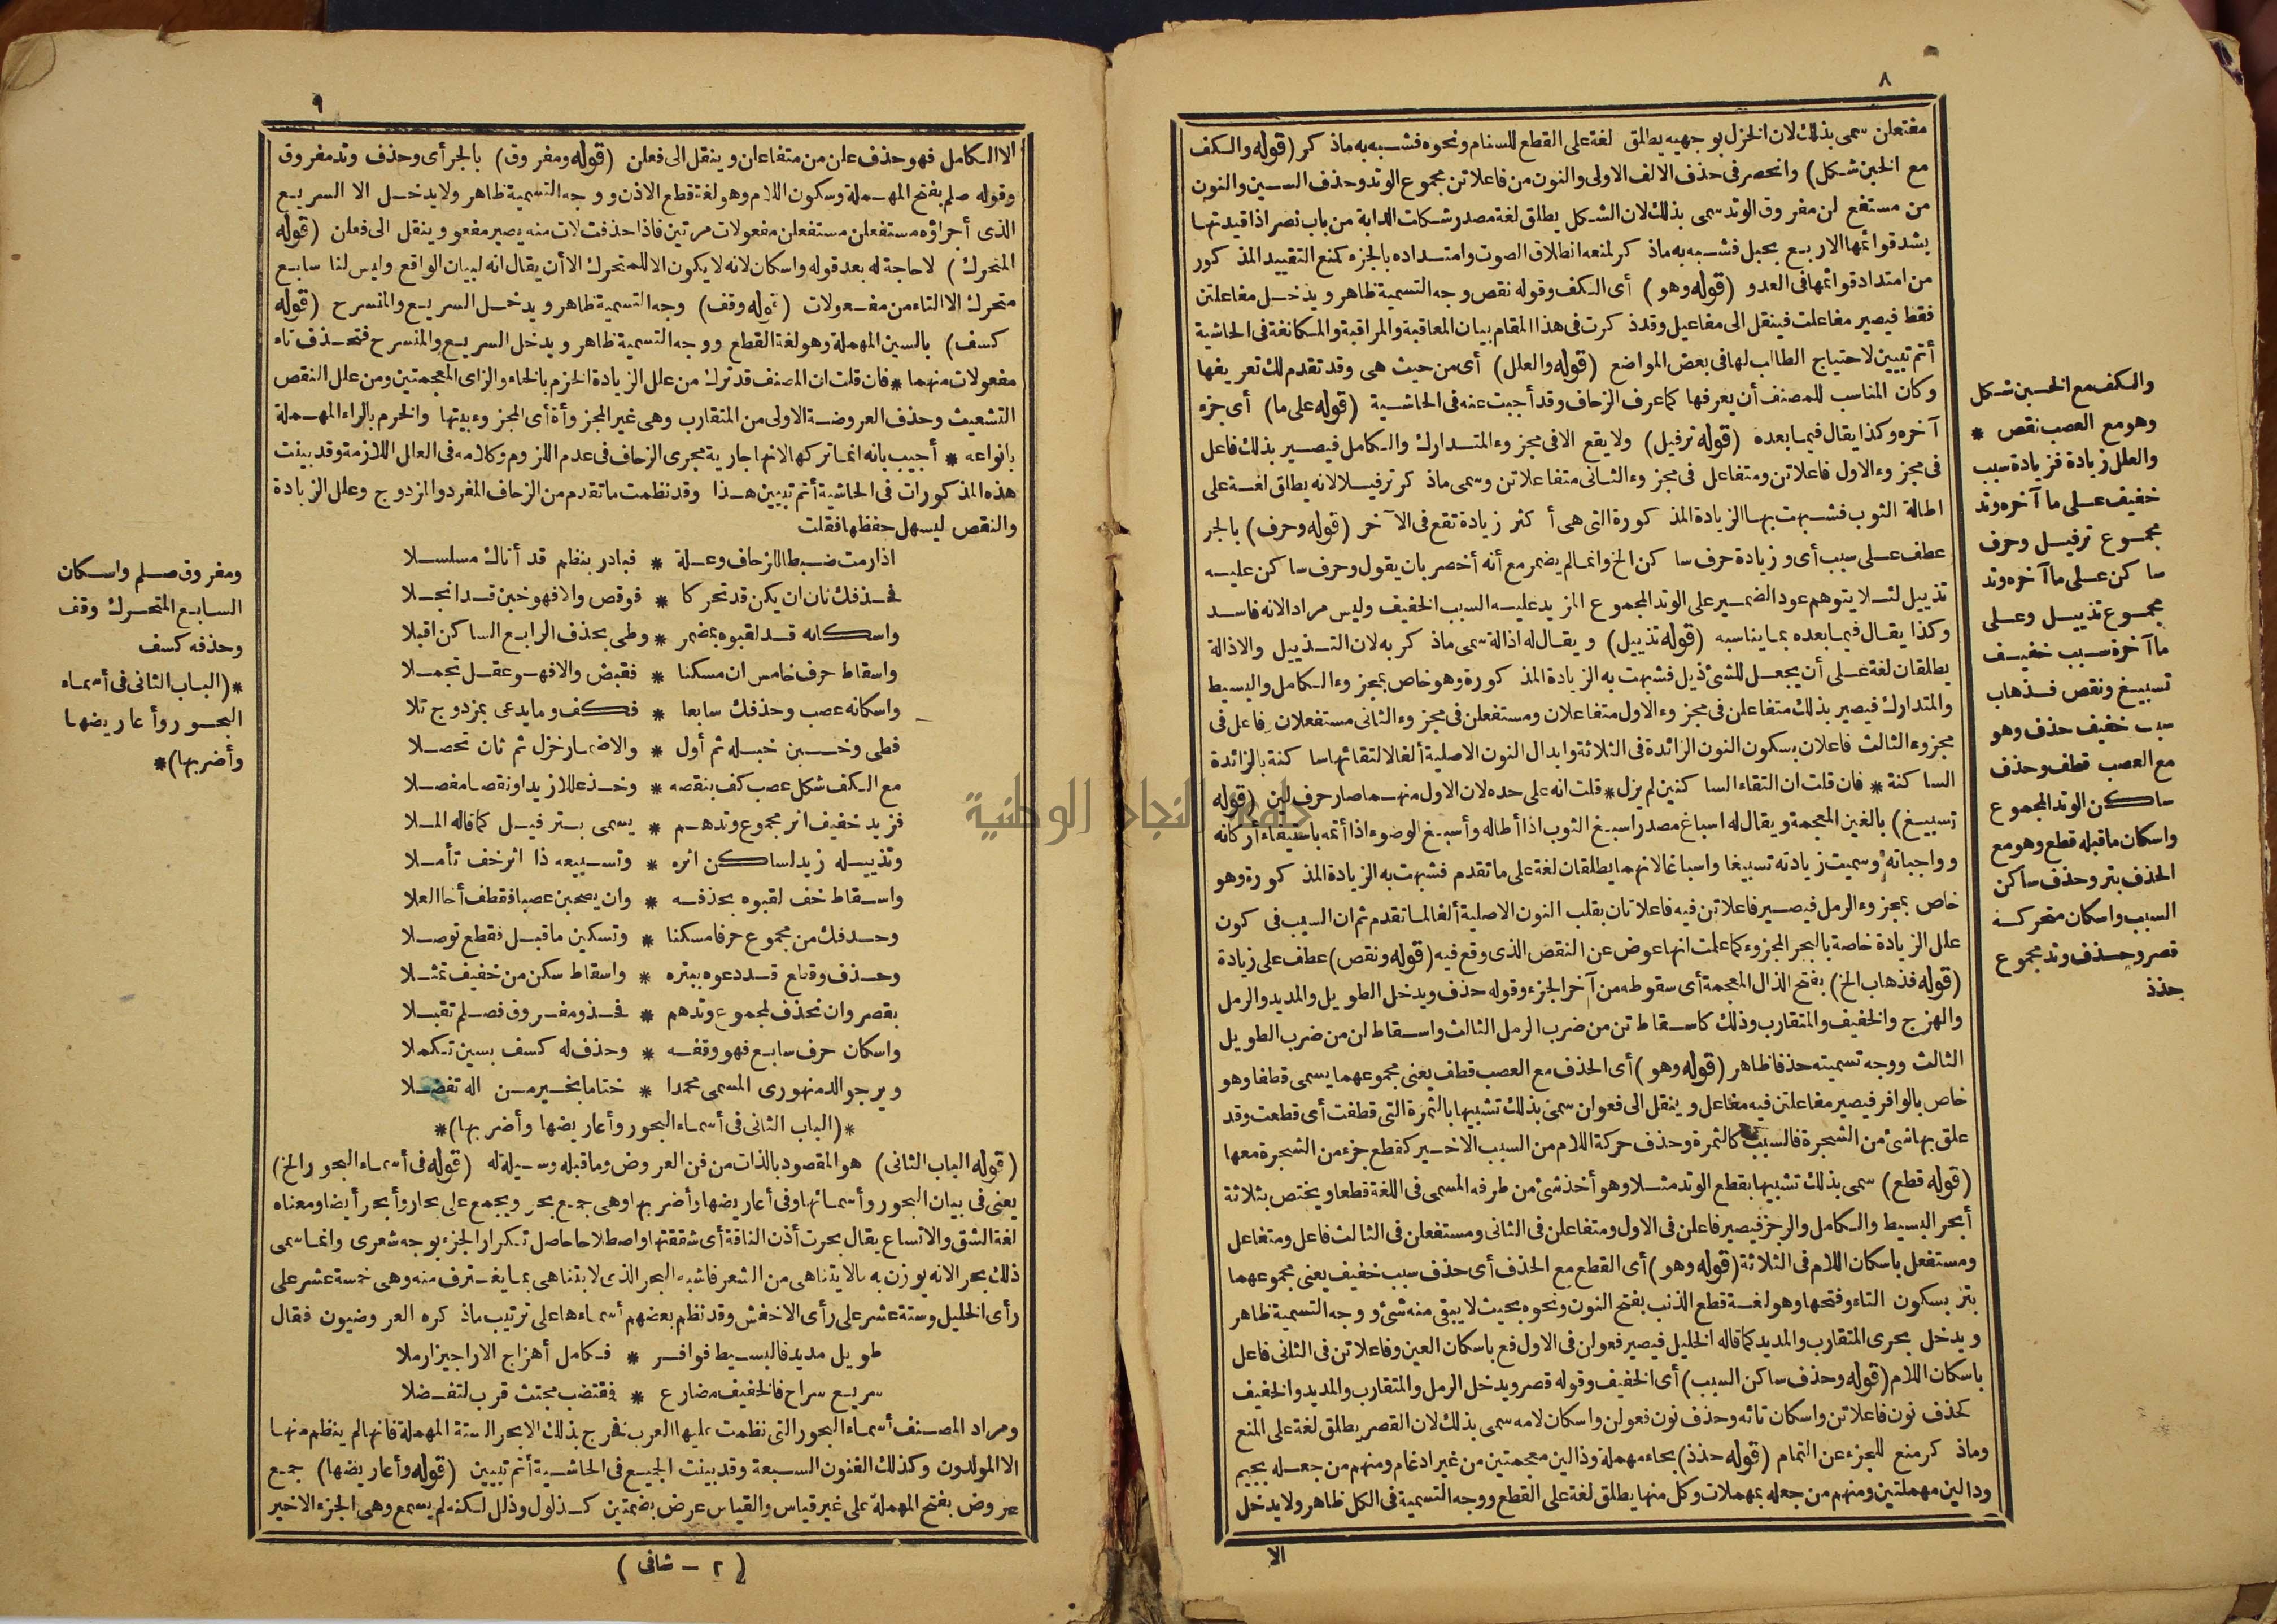 ٨
مفتعلن سمى بذلك لان الخزل بوجهيه يطلق لغة على القطع للسنام ونحوه فشبه به ماذكر (قوله والكف
مع الخبن شكل) وانحصر فى حذف الالف الاولى والنون من فاعلاتن مجموع الوتد وحذف السين والنون
من مستفع لن مفروق الوتد سمى بذلك لان الشكل يطلق لغة مصدر شكلت الدابة من باب نصر اذا قيدتها
بشد قوائمها الاربع بحبل فشبه به ماذكر لمنعه انطلاق الصوت وامتداده بالجزء كمنع التقييد المذكور
من امتداد قوائمها فى العدو (قوله وهو) أى الكف وقوله نقص وجه التسمية ظاهر ويدخل مفاعلتن
فقط فيصير مفاعلت فينقل الى مفاعيل وقد ذكرت فى هذا المقام بيان المعاقبة والمراقبة والمكانفة فى الحاشية
أتم تبيين لاحتياج الطالب لها فى بعض المواضع (قوله والعلل) أى من حيث هى وقد تقدم لك تعريفها
وكان المناسب للمصنف أن يعرفها كما عرف الزحاف وقد أجبت عنه فى الحاشية (قوله على ما) أى جزء
آخره وكذا يقال فيما بعده (قوله ترفيل) ولا يقع الا فى مجزوء المتدارك والكامل فيصير بذلك فاعل
فى مجزوء الاول فاعلاتن ومتفاعل فى مجزوء الثانى متفاعلاتن وسمى ماذكر ترفيلا لانه يطلق لغة على
اطالة الثوب فشبهت بها الزيادة المذكورة التى هى أكثر زيادة تقع فى الآخر (قوله وحرف) بالجر
عطف على سبب أى وزيادة حرف ساكن الخ وانما لم يضمر مع أنه أخصر بان يقول وحرف ساكن عليه
تذييل لئلا يتوهم عود الضمير على الوتد المجموع المزيد عليه السبب الخفيف وليس مرادا لانه فاسد
وكذا يقال فيما بعده بما يناسبه (قوله تذييل) ويقال له اذالة سمى ماذكر به لان التذييل والاذالة
يطلقان لغة على أن يجعل للشئ ذيل فشبهت به الزيادة المذكورة وهو خاص بمجزوء الكامل والبسيط
والمتدارك فيصير بذلك متفاعلن فى مجزوء الاول متفاعلان ومستفعلن فى مجزوء الثانى مستفعلان وفاعلن فى
مجزوء الثالث فاعلان بسكون النون الزائدة فى الثلاثة وابدال النون الاصلية ألفا لالتقائها ساكنة بالزائدة
الساكنة * فان قلت ان التقاء الساكنين لم يزل * قلت انه على حده لان الاول منهما صار حرف لين (قوله
تسبيغ) بالغين المعجمة ويقال له اسباغ مصدر اسبغ الثوب اذا أطاله وأسبغ الوضوء اذا أتمه باستيفاء أركانه
وواجباته وسميت زيادته تسبيغا واسباغا لانهما يطلقان لغة على ما تقدم فشبهت به الزيادة المذكورة وهو
خاص بمجزوء الرمل فيصير فاعلاتن فيه فاعلاتان بقلب النون الاصلية ألفا لما تقدم ثم ان السبب فى كون
علل الزيادة خاصة بالبحر المجزوء كما علمت انها عوض عن النقص الذى وقع فيه (قوله ونقص) عطف على زيادة
(قوله فذهاب الخ) بفتح الذال المعجمة أى سقوطه من آخر الجزء وقوله حذف ويدخل الطويل والمديد والرمل
والهزج والخفيف والمتقارب وذلك كاسقاط تن من ضرب الرمل الثالث واسقاط لن من ضرب الطويل
الثالث ووجه تسميته حذفا ظاهر (قوله وهو) أى الحذف مع العصب قطف يعنى مجموعهما يسمى قطفا وهو
خاص بالوافر فيصير مفاعلتن فيه مفاعل وينقل الى فعولن سمى بذلك تشبيها بالثمرة التى قطفت أى قطعت وقد
علق بها شئ من الشجرة فالسبب كالثمرة وحذف حركة اللام من السبب الاخير كقطع جزء من الشجرة معها
(قوله قطع) سمى بذلك تشبيها بقطع الوتد مثلا وهو أخذ شئ من طرفه المسمى فى اللغة قطعا ويختص بثلاثة
أبحر البسيط والكامل والرجز فيصير فاعلن فى الاول ومتفاعلن فى الثانى ومستفعلن فى الثالث فاعل ومتفاعل
ومستفعل باسكان اللام فى الثلاثة (قوله وهو) أى القطع مع الحذف أى حذف سبب خفيف يعنى مجموعهما
بتر بسكون التاء وفتحها وهو لغة قطع الذنب بفتح النون ونحوه بحيث لا يبقى منه شئ ووجه التسمية ظاهر
ويدخل بحرى المتقارب والمديد كما قاله الخليل فيصير فعولن فى الاول فع باسكان العين وفاعلاتن فى الثانى فاعل
باسكان اللام (قوله وحذف ساكن السبب) أى الخفيف وقوله قصر ويدخل الرمل والمتقارب والمديد والخفيف
كحذف نون فاعلاتن واسكان تائه وحذف نون فعولن واسكان لامه سمى بذلك لان القصر يطلق لغة على المنع
وماذكر منع للجزء عن التمام (قوله حذذ) بحاء مهملة وذالين معجمتين من غير ادغام ومنهم من جعله بجيم
ودالين مهملتين ومنهم من جعله بمهملات وكل منها يطلق لغة على القطع ووجه التسمية فى الكل ظاهر ولا يدخل
الا
والكف مع الخبن شكل
وهو مع العصب نقص *
والعلل زيادة فزيادة سبب
خفيف على ما آخره وتد
مجموع ترفيل وحرف
ساكن على ما آخره وتد
مجموع تذييل وعلى
ما آخره سبب خفيف
تسبيغ ونقص فذهاب
سبب خفيف حذف وهو
مع العصب قطف وحذف
ساكن الوتد المجموع
واسكان ما قبله قطع وهو مع
الحذف بتر وحذف ساكن
السبب واسكان متحركه
قصر وحذف وتد مجموع
حذذ
٩
الا الكامل فهو حذف علن من متفاعلن وينقل الى فعلن (قوله ومفروق) بالجر أى وحذف وتد مفروق
وقوله صلم بفتح المهملة وسكون اللام وهو لغة قطع الاذن ووجه التسمية ظاهر ولا يدخل الا السريع
الذى أجزاؤه مستفعلن مستفعلن مفعولات مرتين فاذا حذفت لات منه يصير مفعو وينقل الى فعلن (قوله
المتحرك) لا حاجة له بعد قوله واسكان لانه لا يكون الا للمتحرك الا أن يقال انه لبيان الواقع وليس لنا سابع
متحرك الا التاء من مفعولات (قوله وقف) وجه التسمية ظاهر ويدخل السريع والمنسرح (قوله
كسف) بالسين المهملة وهو لغة القطع ووجه التسمية ظاهر ويدخل السريع والمنسرح فتحذف تاء
مفعولات منهما * فان قلت ان المصنف قد ترك من علل الزيادة الخزم بالخاء والزاى المعجمتين ومن علل النقص
التشعيث وحذف العروضة الاولى من المتقارب وهى غير المجزوأة أى المجزوء بيتها والخرم بالراء المهملة
بانواعه * أجيب بانه انما تركها لانها جارية مجرى الزحاف فى عدم اللزوم وكلامه فى العلل اللازمة وقد بينت
هذه المذكورات فى الحاشية أتم تبيين هذا وقد نظمت ما تقدم من الزحاف المفرد والمزدوج وعلل الزيادة
والنقص ليسهل حفظها فقلت
اذا رمت ضبطا للزحاف وعلة * فبادر بنظم قد أتاك مسلسلا
فحذفك ثان ان يكن قد تحركا * فوقص والا فهو خبن قد انجلا
واسكانه قد لقبوه بمضمر * وطى بحذف الرابع الساكن اقبلا
واسقاط حرف خامس ان مسكنا * فقبض والا فهو عقل تجملا
واسكانه عصب وحذفك سابعا * فكف وما يدعى بمزدوج تلا
فطى وخبن خبله ثم أول * والاضمار خزل ثم ثان تحصلا
مع الكف شكل عصب كف بنقصه * وخذ عللا زيدا ونقصا مفصلا
فزيد خفيف اثر مجموع وتدهم * يسمى بترفيل كما قاله الملا
وتذييله زيد لساكن اثره * وتسبيغه ذا اثر خف تأملا
واسقاط خف لقبوه بحذفه * وان يصحبن عصبا فقطف أخا العلا
وحذفك من مجموع حرفا مسكنا * وتسكين ما قبل فقطع توصلا
وحذف وقطع قد دعوه ببتره * واسقاط سكن من خفيف تمثلا
بقصر وان تحذف لمجموع وتدهم * فحذ ومفروق فصلم تقبلا
واسكان حرف سابع فهو وقفه * وحذف له كسف بسين تكملا
ويرجو الدمنهورى المسمى محمدا * ختاما بخير من اله تفضلا
*(الباب الثانى فى أسماء البحور وأعاريضها وأضربها)*
(قوله الباب الثانى) هو المقصود بالذات من فن العروض وما قبله وسيلة له (قوله فى أسماء البحور الخ)
يعنى فى بيان البحور وأسمائها وفى أعاريضها وأضربها وهى جمع بحر ويجمع على بحار وأبحر أيضا ومعناه
لغة الشق والاتساع يقال بحرت أذن الناقة أى شققتها واصطلاحا حاصل تكرار الجزء بوجه شعرى وانما سمى
ذلك بحرا لانه يوزن به ما لا يتناهى من الشعر فاشبه البحر الذى لا يتناهى بما يغترف منه وهى خمسة عشر على
رأى الخليل وستة عشر على رأى الاخفش وقد نظم بعضهم أسماءها على ترتيب ماذكره العروضيون فقال
طويل مديد فالبسيط فوافر * فكامل أهزاج الاراجيز ارملا
سريع سراح فالخفيف مضارع * فمقتضب مجتث قرب لتفضلا
ومراد المصنف أسماء البحور التى نظمت عليها العرب فخرج بذلك الابحر الستة المهملة فانها لم ينظم منها
الا المولدون وكذلك الفنون السبعة وقد بينت الجميع فى الحاشية أتم تبيين (قوله وأعاريضها) جمع
عروض بفتح المهملة على غير قياس والقياس عرض بضمتين كذلول وذلل لكنه لم يسمع وهى الجزء الاخير
(٢ - شافى)
ومفروق صلم واسكان
السابع المتحرك وقف
وحذفه كسف
*(الباب الثانى فى أسماء
البحور وأعاريضها
وأضربها)*
جامعة النجاح الوطنية